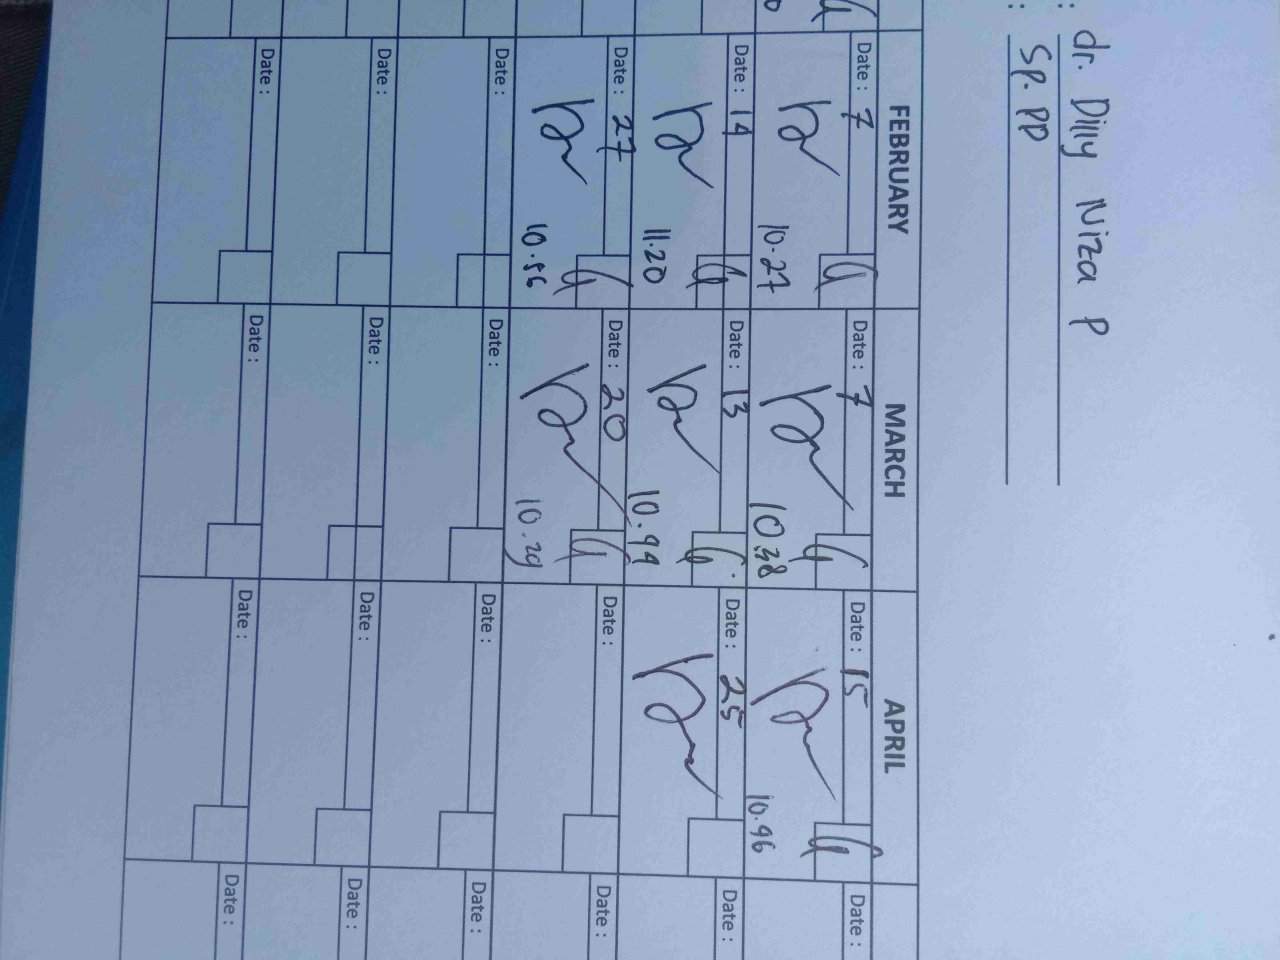 : dr. Dilly Niza P
: Sp. PD
FEBRUARY MARCH APRIL
Date : 7 Date : 7 Date : 15 Date :
10.27 10.38 10.46
Date : 14 Date : 13 Date : 25 Date :
11.20 10.44
Date : 27 Date : 20 Date : Date :
10.56 10.29
Date : Date : Date : Date :
Date : Date : Date : Date :
Date : Date : Date : Date :